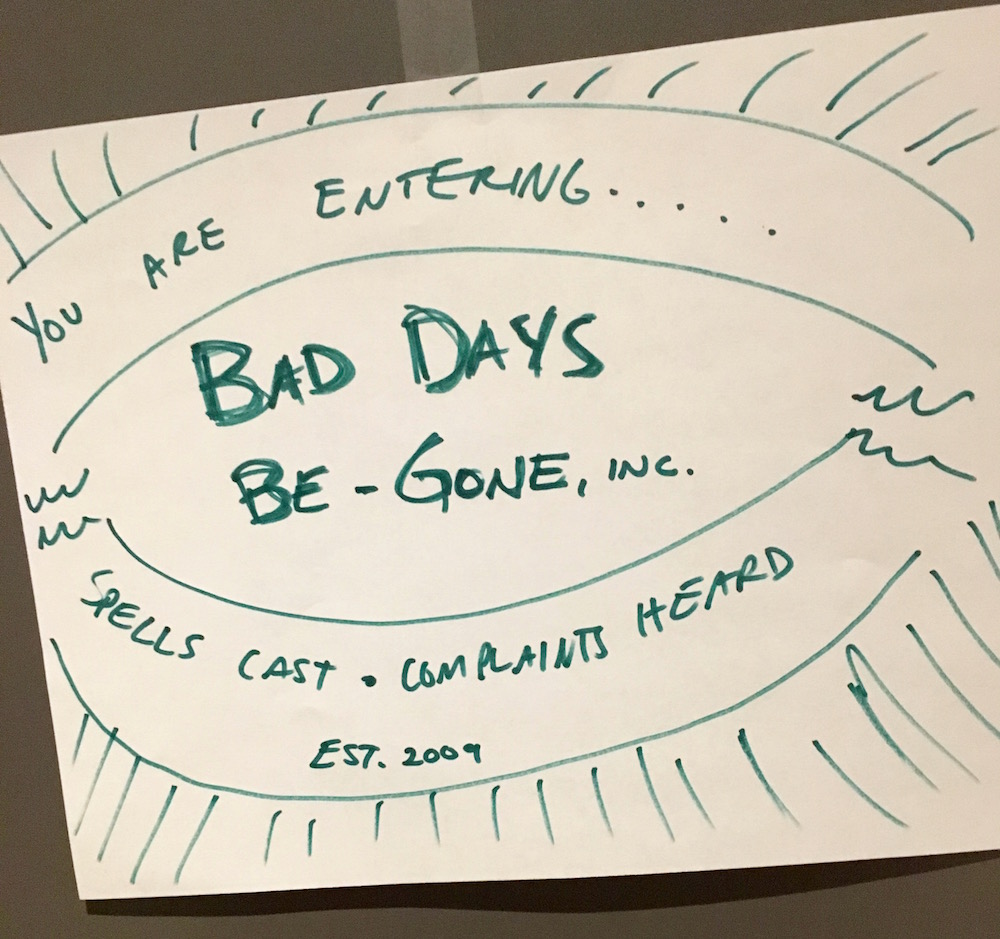 YOU ARE ENTERING.....
BAD DAYS
BE-GONE, INC.
SPELLS CAST • COMPLAINTS HEARD
EST. 2009